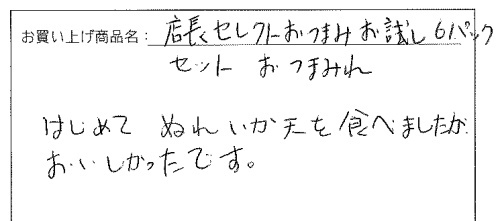 お買い上げ商品名: 店長セレクトおつまみお試し6パック
セット おつまみれ
はじめて ぬれいか天を食べましたが
おいしかったです。